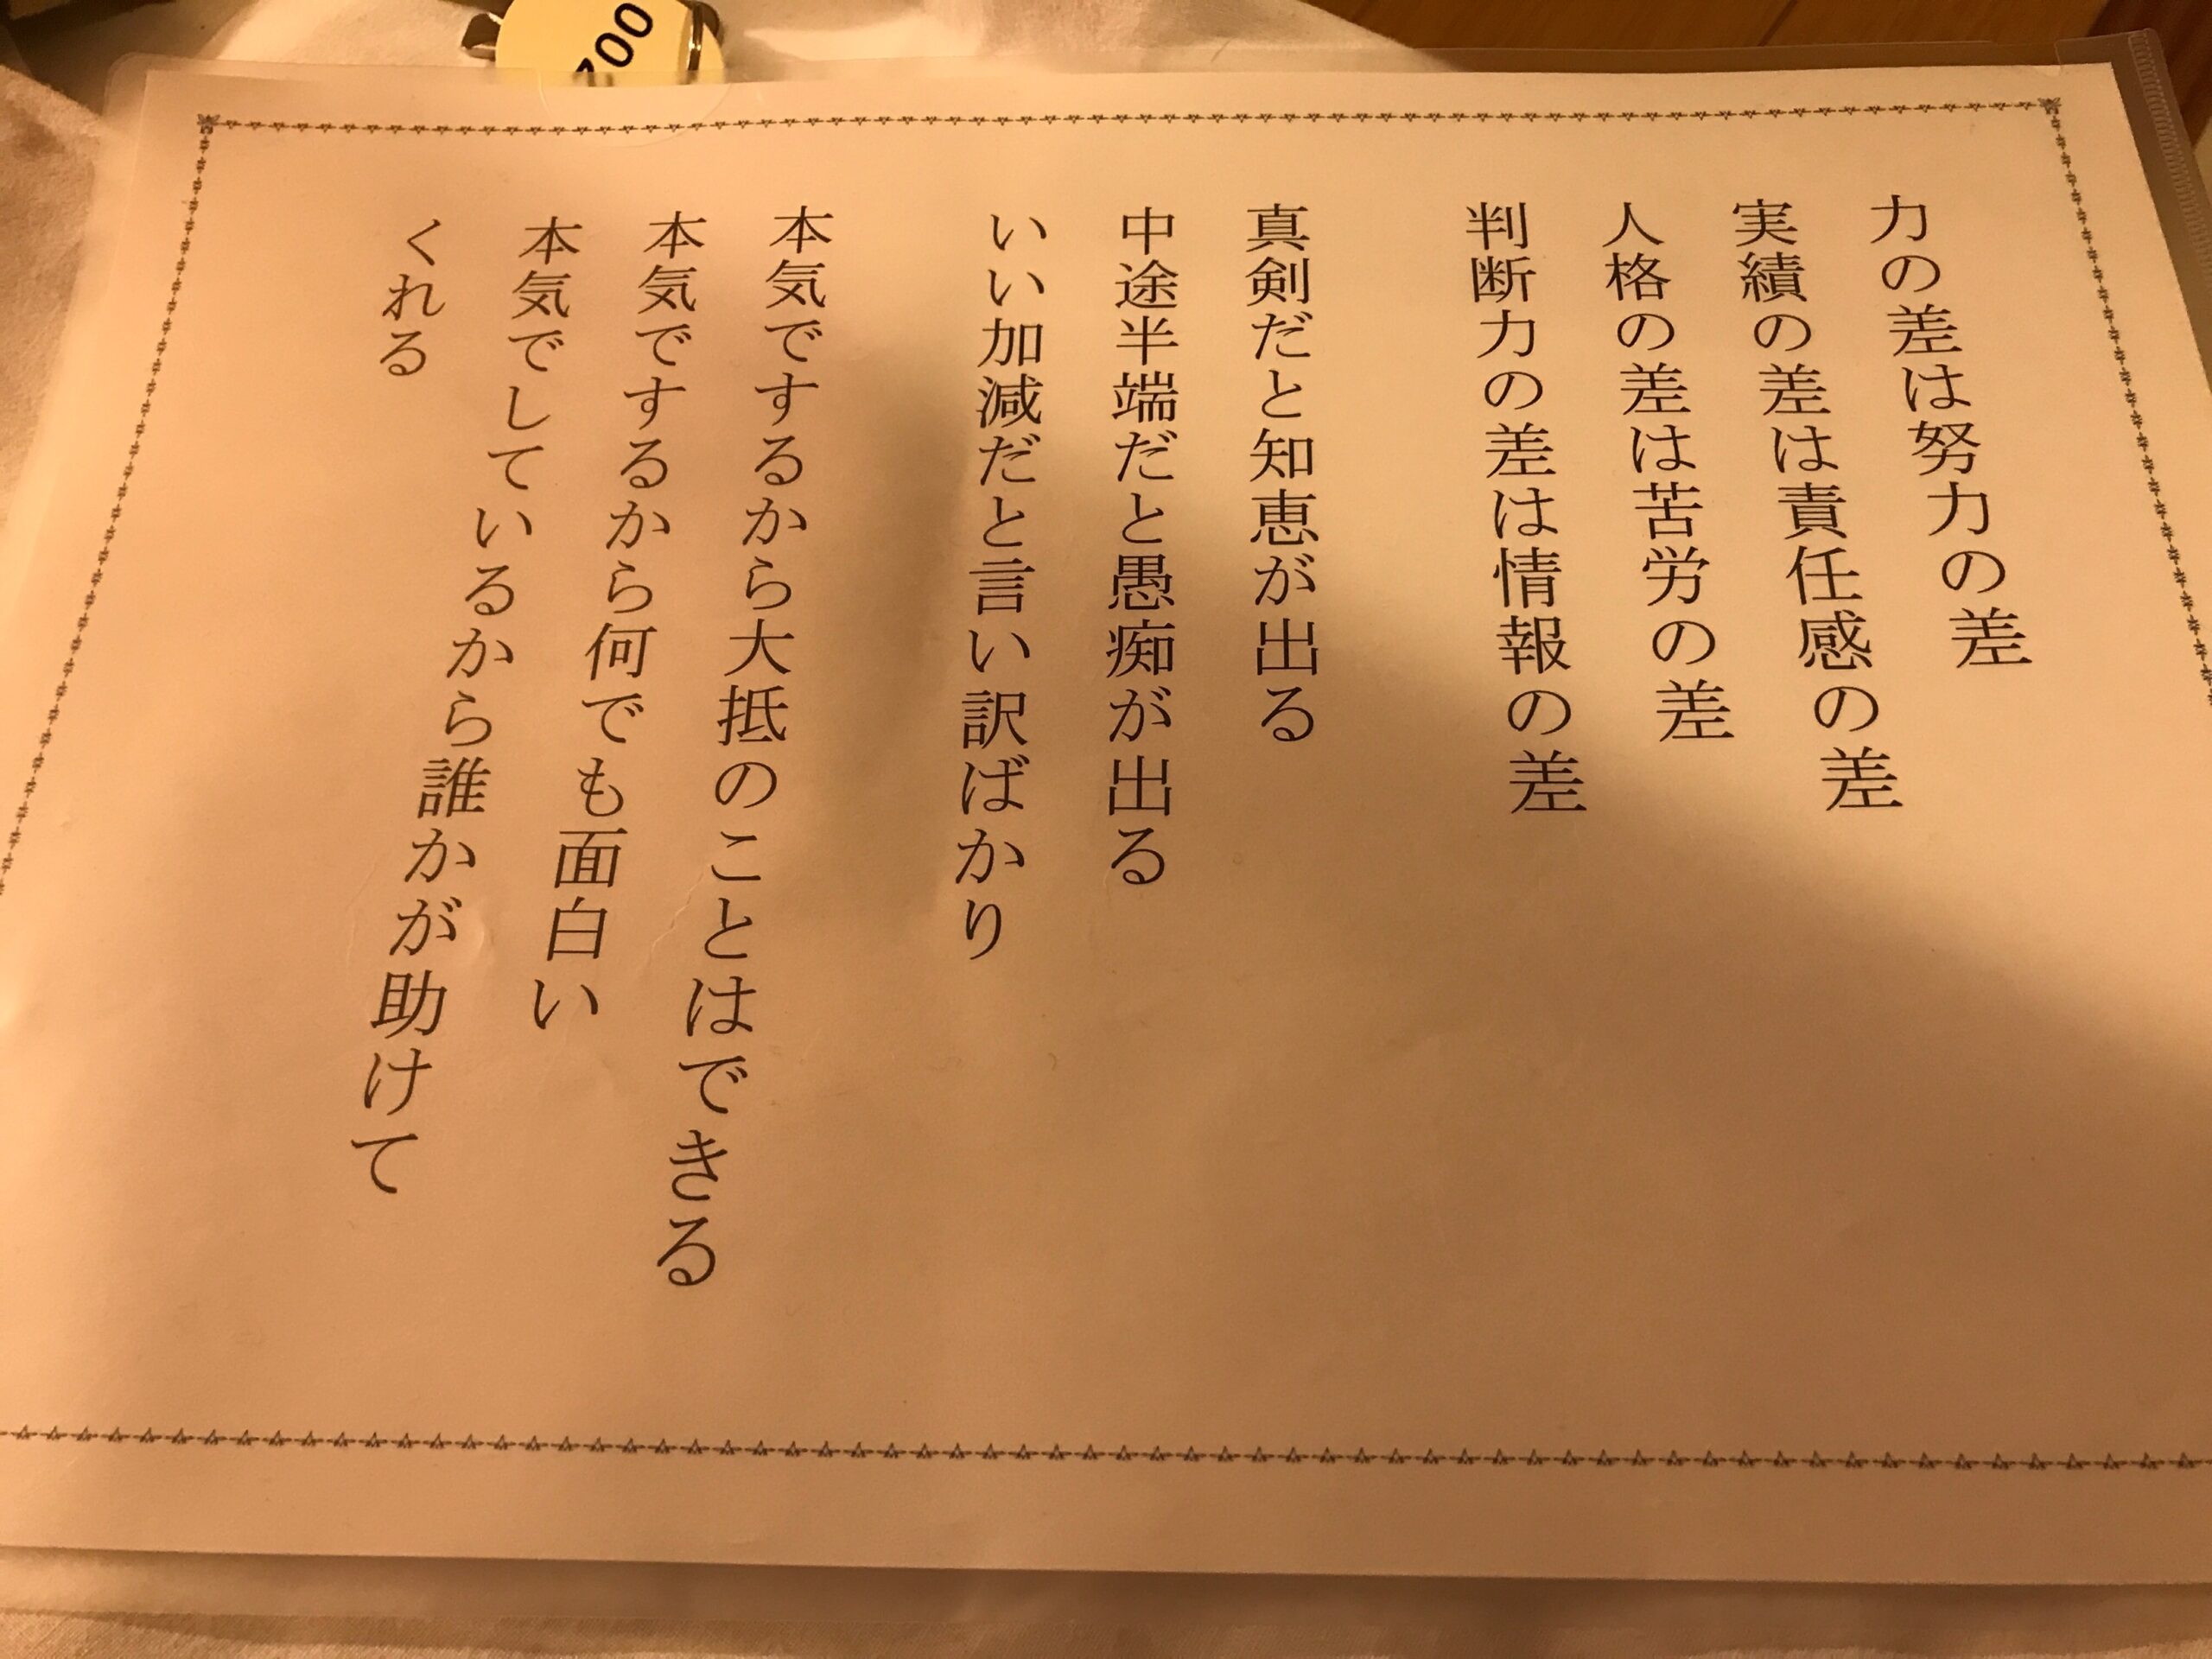 力の差は努力の差
実績の差は責任感の差
人格の差は苦労の差
判断力の差は情報の差
真剣だと知恵が出る
中途半端だと愚痴が出る
いい加減だと言い訳ばかり
本気でするから大抵のことはできる
本気でするから何でも面白い
本気でしているから誰かが助けて
くれる